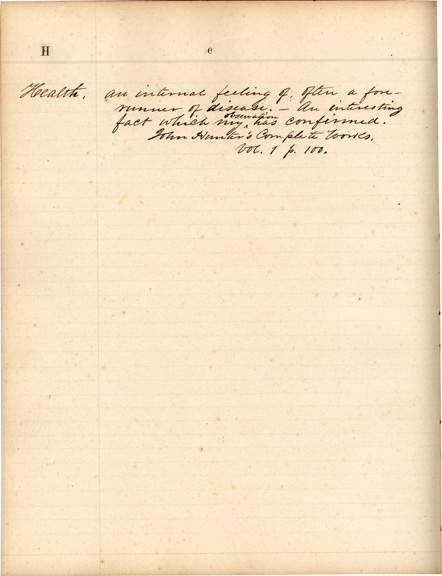 H e
Health. an internal feeling of, often a fore-
runner of disease. — An interesting
observation
fact which my ^ has confirmed.
John Hunter's Complete Works,
Vol. 1 p. 100.